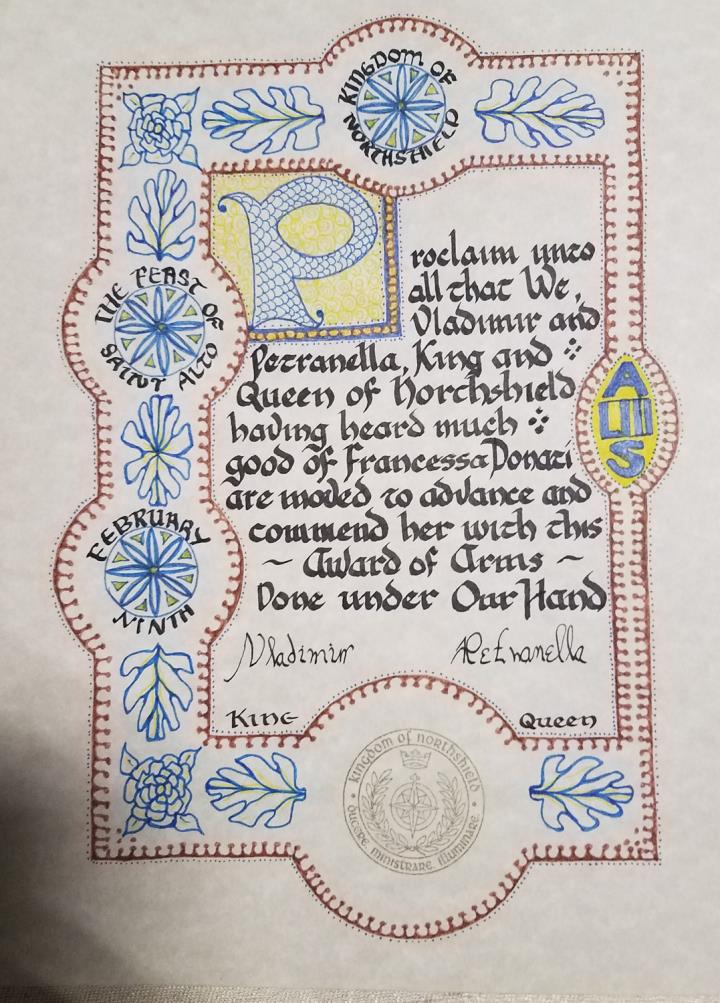 KINGDOM OF
NORTHSHIELD
THE FEAST OF
SAINT ALTO
FEBRUARY
NINTH
Proclaim unto
all that We,
Vladimir and
Petranella, King and
Queen of Northshield
having heard much
good of Francessa Donati
are moved to advance and
commend her with this
~ Award of Arms ~
Done under Our Hand
Vladimir Petranella
King Queen
kingdom of northshield
QUAERE MINISTRARE ILLUMINARE